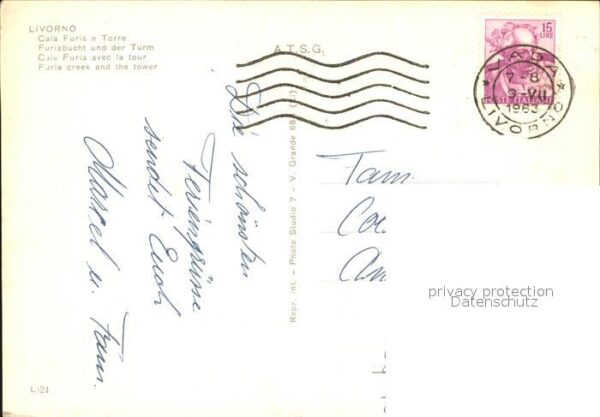 LIVORNO
Cala Furia e Torre
Furiabucht und der Turm
Caie Furia avec la tour
Furia creek and the tower
A.T.S.G.
15
LIRE
POSTE ITALIANE
7-8
9-VII
1963
LIVORNO
Die schönsten
Feriengrüsse
sendet Euch
Marcel u. Fam.
Repr. int. - Photo Studio 7 - V. Grande 68
Fam.
privacy protection
Datenschutz
L/21